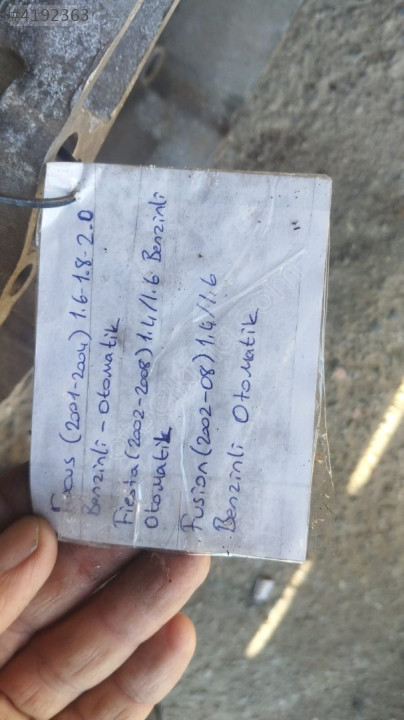 #4192363
Focus (2001-2004) 1.6-1.8-2.0
Benzinli - Otomatik
Fiesta (2002-2008) 1.4/1.6 Benzinli
Otomatik
Fusion (2002-08) 1.4/1.6
Benzinli Otomatik